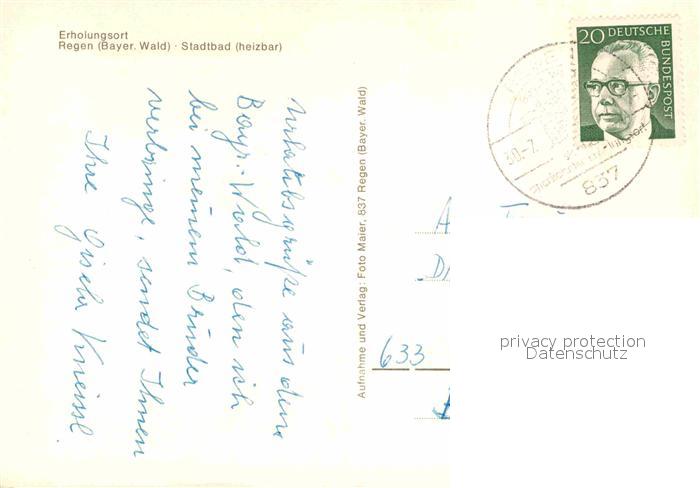 Erholungsort
Regen (Bayer. Wald) · Stadtbad (heizbar)
Urlaubsgrüße aus dem
Bayr. Wald, den ich
bei meinem Bruder
verbringe, sendet Ihnen
Ihre Gisela Kneissl.
Aufnahme und Verlag: Foto Maier, 837 Regen (Bayer. Wald)
20 DEUTSCHE
BUNDESPOST
30.-7.
837
633
privacy protection
Datenschutz